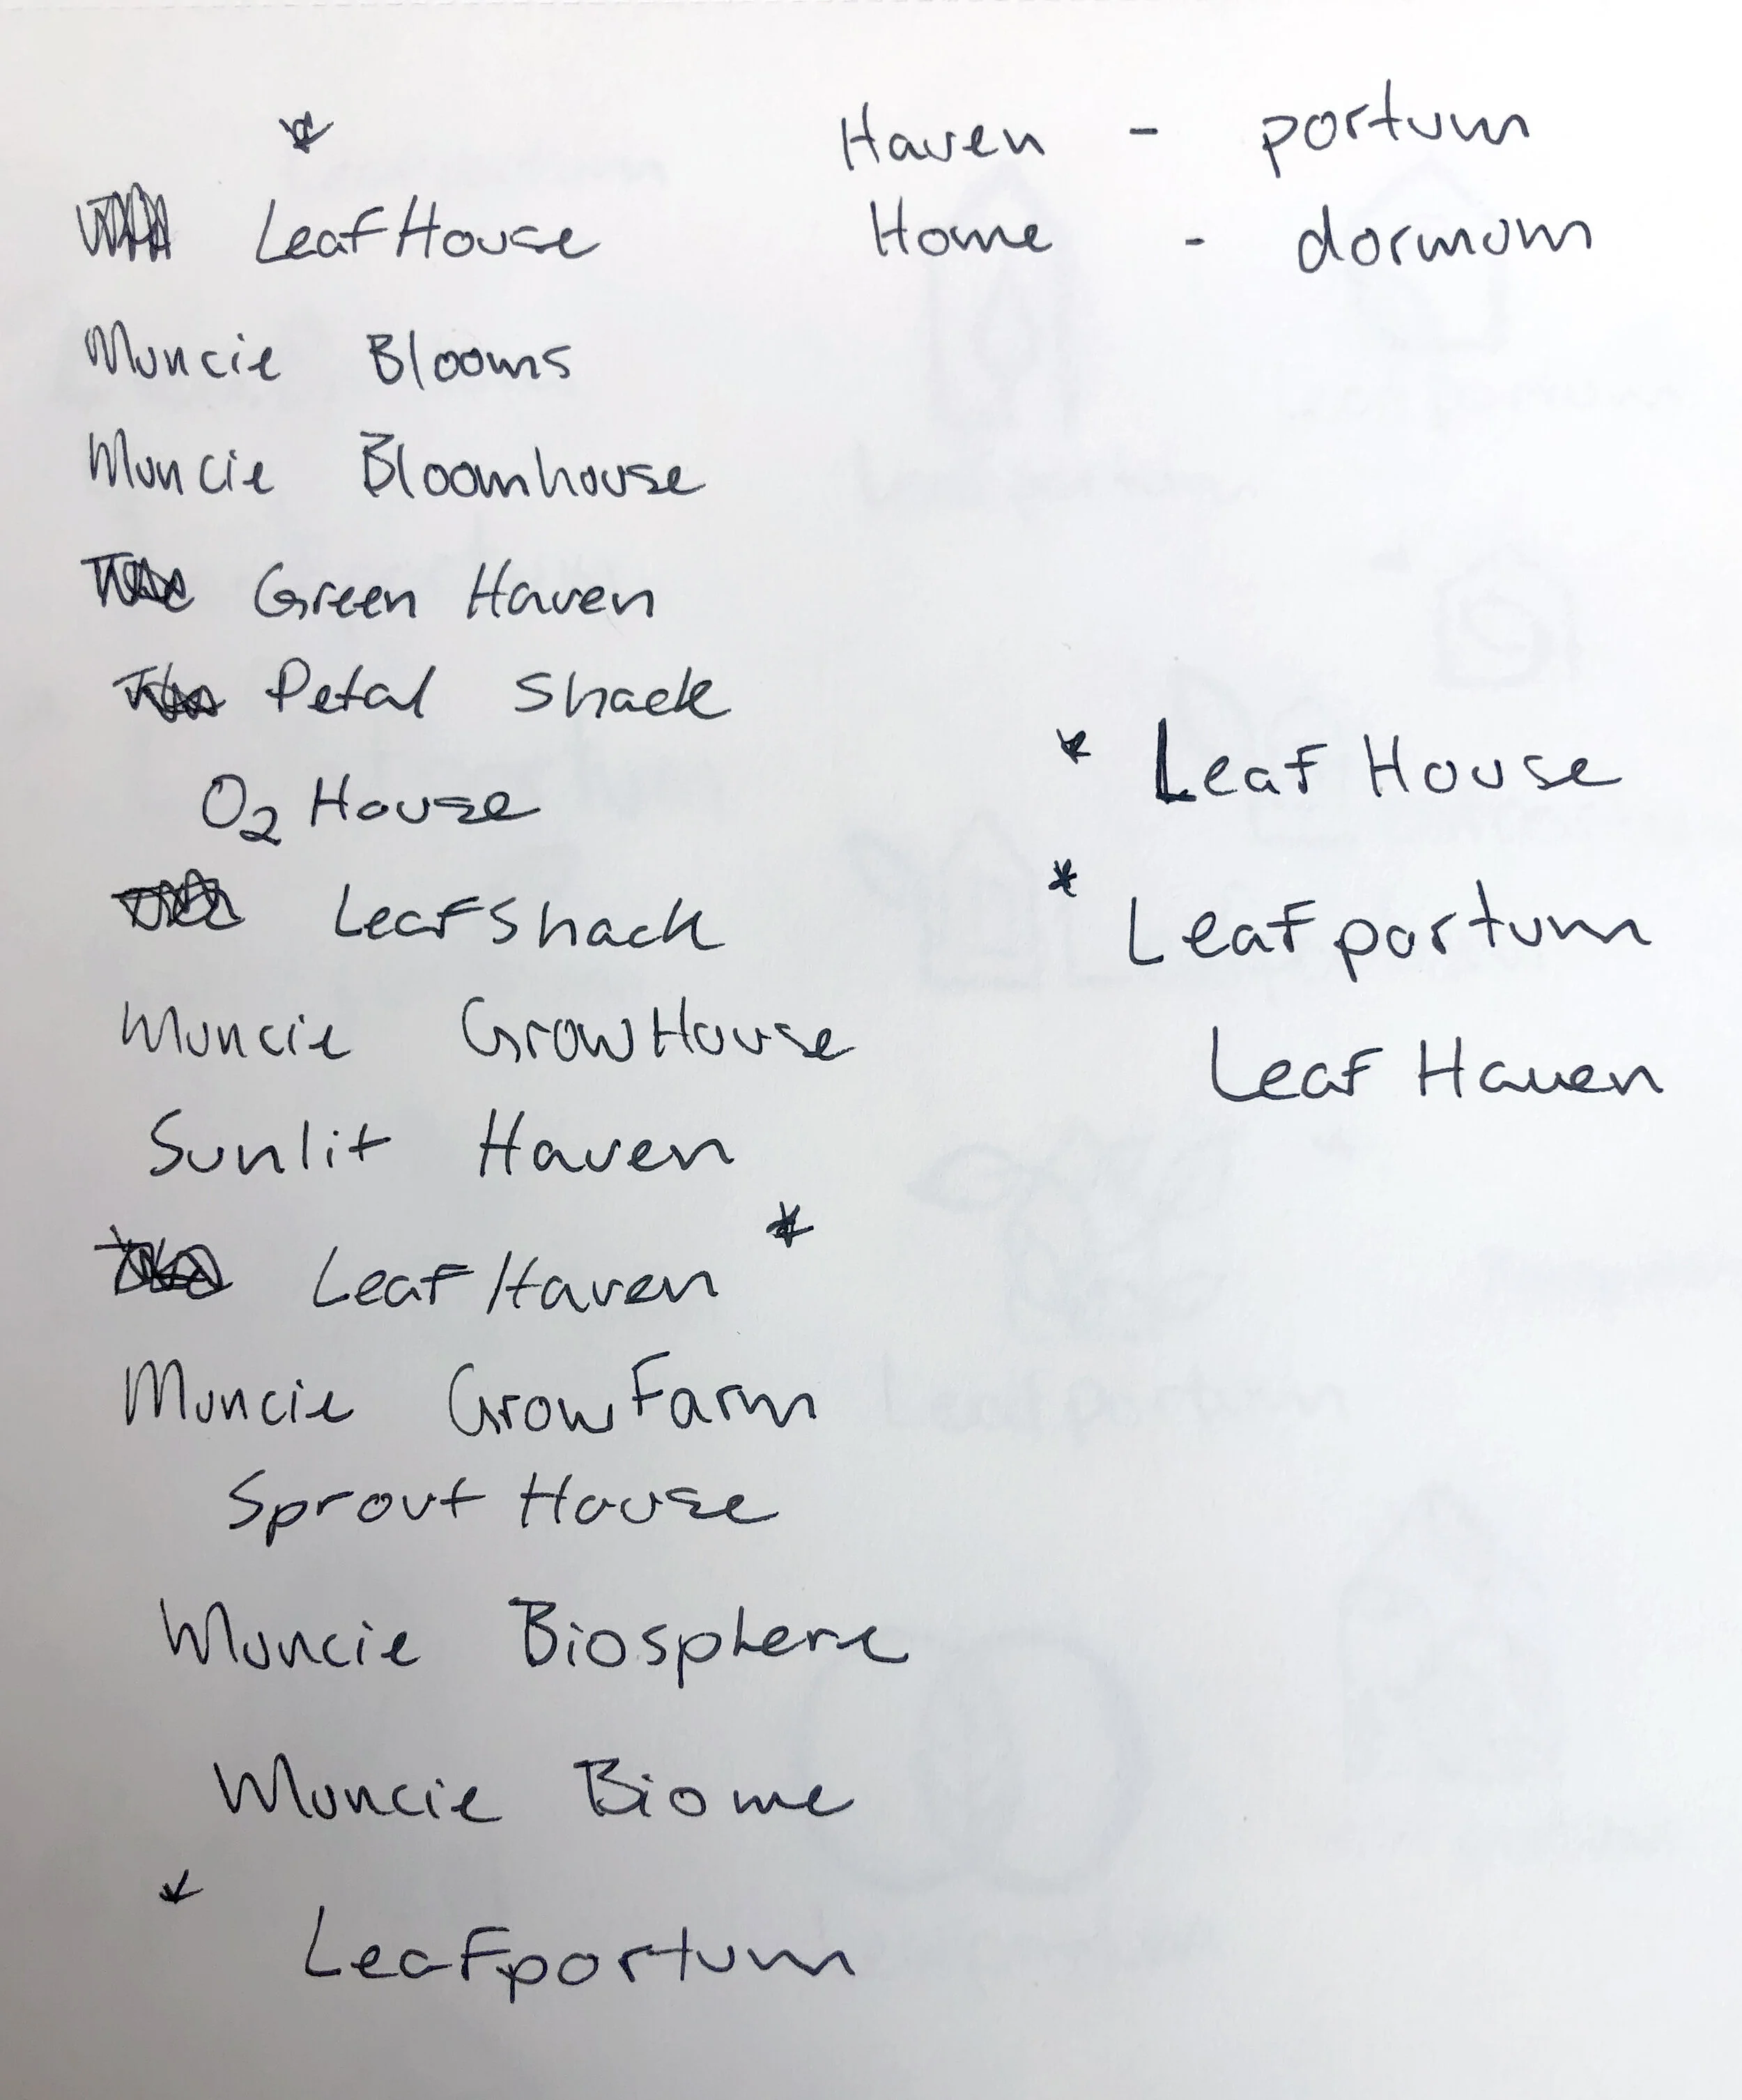 *
LeafHouse
Muncie Blooms
Muncie Bloomhouse
Green Haven
Petal Shack
O₂ House
LeafShack
Muncie GrowHouse
Sunlit Haven
LeafHaven *
Muncie GrowFarm
Sprout House
Muncie Biosphere
Muncie Biome
*
Leafportum
Haven - portum
Home - dormum
* Leaf House
* Leafportum
Leaf Haven